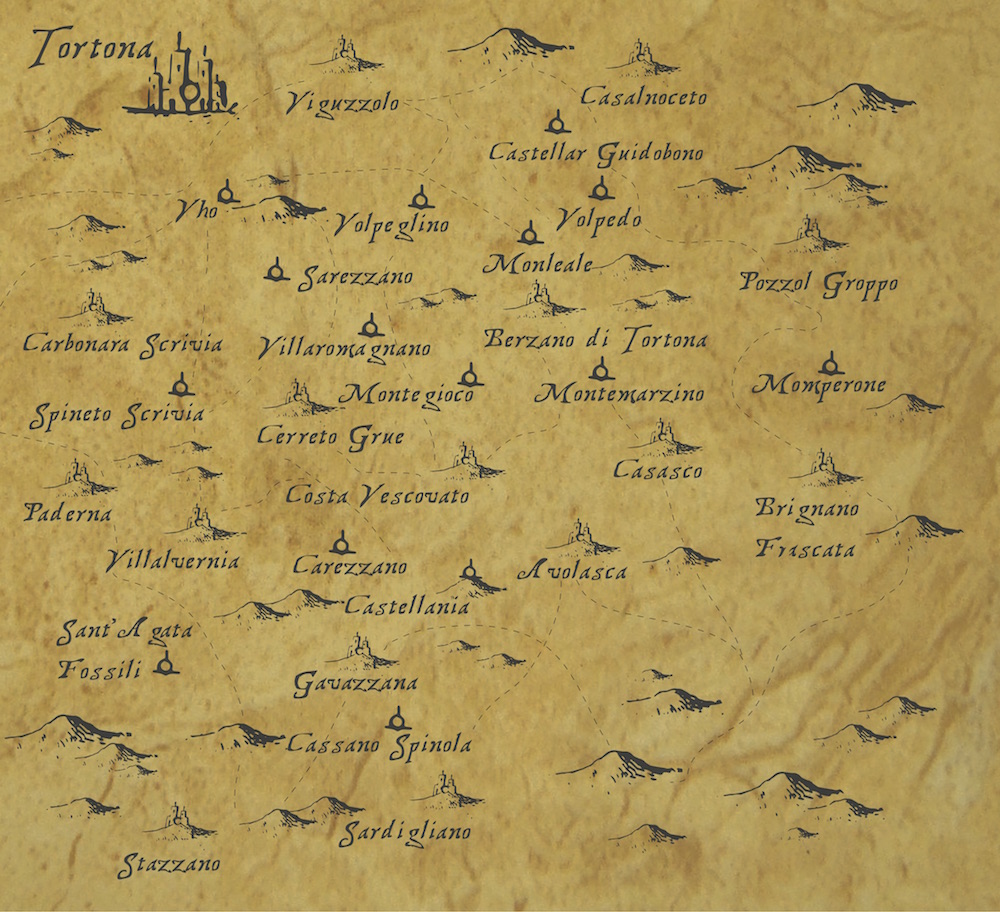 Tortona
Viguzzolo
Casalnoceto
Castellar Guidobono
Vho
Volpeglino
Volpedo
Monleale
Sarezzano
Pozzol Groppo
Carbonara Scrivia
Villaromagnano
Berzano di Tortona
Spineto Scrivia
Montegioco
Montemarzino
Momperone
Cerreto Grue
Casasco
Paderna
Costa Vescovato
Brignano
Frascata
Villalvernia
Carezzano
Avolasca
Castellania
Sant'Agata
Fossili
Gavazzana
Cassano Spinola
Sardigliano
Stazzano